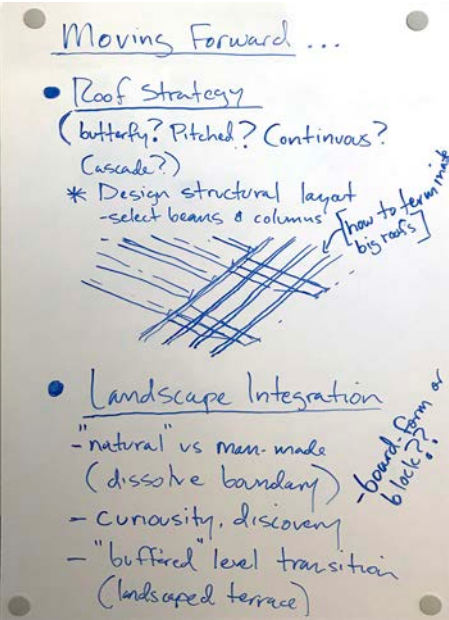 Moving Forward ...
• Roof Strategy
(butterfly? Pitched? Continuous?
Cascade?)
* Design structural layout
-select beams & columns
[how to terminate
big roofs]
• Landscape Integration
- "natural" vs man-made
(dissolve boundary)
- curiousity, discovery
- "buffered" level transition
(landscaped terrace)
-board-form or
block??